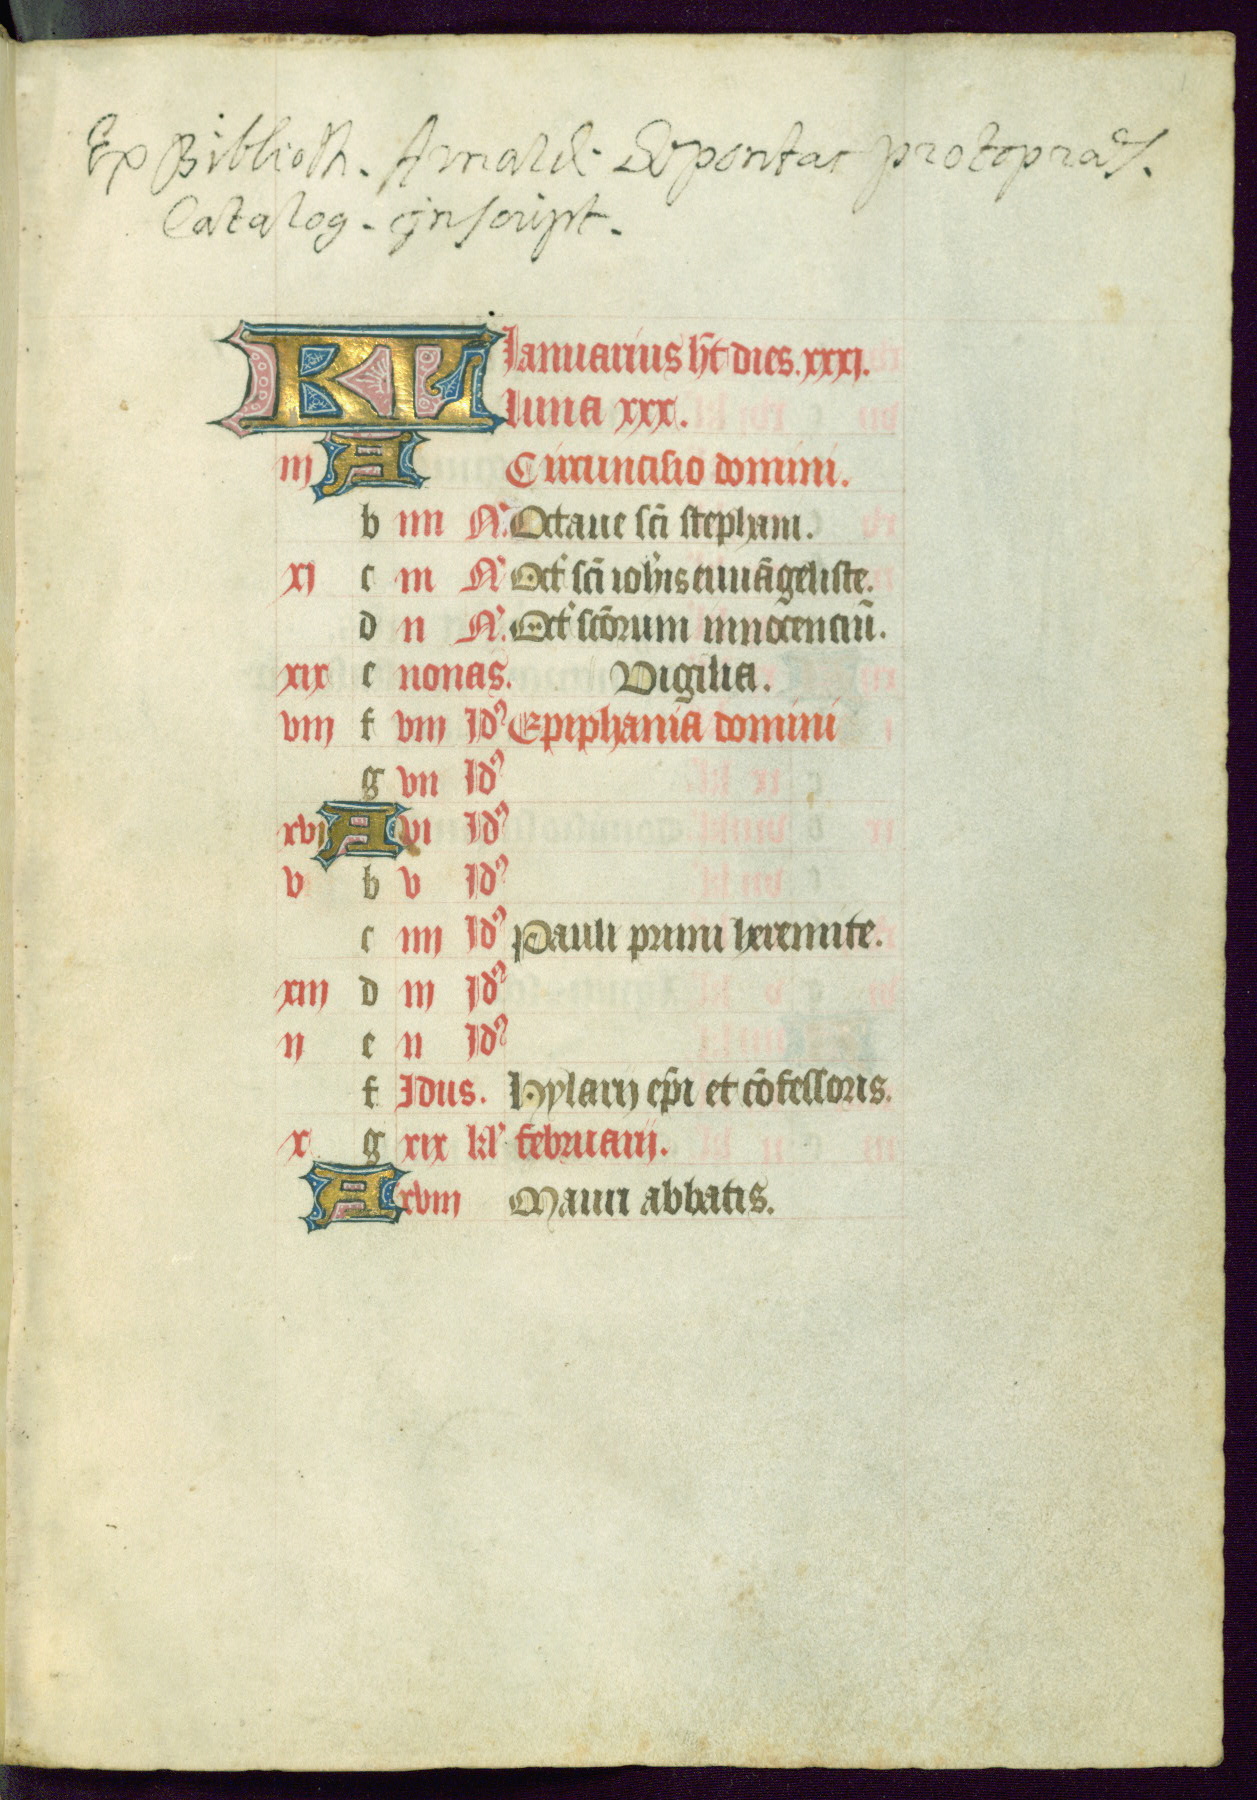 Ex Biblioth. Arnaldi Depontac protopræs.
Catalog. inscript.
KL Ianuarius ħt dies. xxxj.
luna xxx.
iij A Circuncisio domini.
b iiii N̄. Octaue sc̄i stephani.
xj c iii N̄. Oct' sc̄i ioh̄is euuāgeliste.
d ii N̄. Oct' sc̄orum innocenciū.
xix e nonas. Vigilia.
viij f viij Id' Epiphania domini
g vii Id'
xvj A vi Id'
v b v Id'
c iiij Id' Pauli primi heremite.
xiij d iij Id'
ij e ii Id'
f Idus. Hylarij ep̄i et cōfessoris.
x g xix kl' februarij.
A xviij Mauri abbatis.